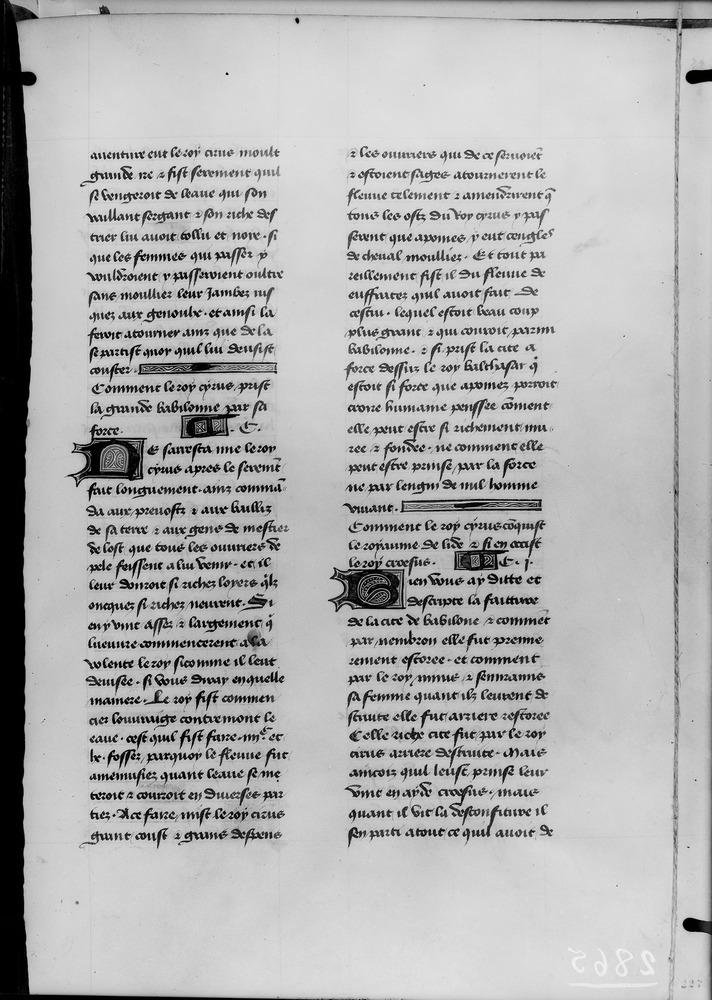 auenture eut le roy cirus moult
grande ire ⁊ fist serement quil
se vengeroit de leaue qui son
vaillant sergant ⁊ son riche des
trier lui auoit tollu et noye . si
que les femmes qui passer y
vouldroient y passeroient oultre
sans moullier leur Jambes ius
ques aux genoulx . et ainsi la
feroit atourner ains que de la
se partist quoy quil lui deusist
couster .
Comment le roy cyrus prist
la grande babilonne par sa
force . C .
NE sarresta mie le roy
cyrus apres le seremẽt
fait longuement . ains commã
da aux preuostz ⁊ aux bailliz
de sa terre ⁊ aux gens de mestier
de lost que tous les ouuriers de
pele feissent a lui venir . et il
leur donroit si riches loyers qĩlz
oncques si riches neurent . Si
en y vint assez ⁊ largement q̃
lieuure commencerent a la
volente le roy sicomme il leut
deuisee . si vous diray en quelle
maniere . Le roy fist commen
cier louuraige contremont le
eaue . cest quil fist faire .iiijᶜ. et
lx . fossez parquoy le fleuue fut
amenuisiez quant leaue se me
teroit ⁊ courroit en diuerses par
ties . A ce faire mist le roy cirus
grant coust ⁊ grans despens
⁊ les ouuriers qui de ce seruoiẽt
⁊ estoient sages atournerent le
fleuue telement ⁊ amendrirent q̃
tous les ostz du Roy cyrus y pas
serent que apoines y eut cengles
de cheual moullies . Et tout pa
reillement fist il du fleuue de
euffrates quil auoit fait de
cestui . lequel estoit beau coup
plus grant ⁊ qui couroit parmi
babilonne . ⁊ si prist la cite a
force dessus le roy balthasar q̃
estoit si forte que apoines porroit
croire humaine penssee cõment
elle peut estre si richement mu
ree ⁊ fondee . ne comment elle
peut estre prinse par la force
ne par lengin de nul homme
viuant .
Comment le roy cyrus cõquist
le royaume de lide ⁊ si en occist
le roy croesus . C . j .
Bien vous ay ditte et
descripte la faitture
de la cite de babilone ⁊ commẽt
par nembron elle fut premie
rement estoree . et comment
par le roy ninus ⁊ semiramis
sa femme quant ilz leurent de
struite elle fut arriere restoree
Celle riche cite fut par le roy
cirus arriere destruite . Mais
aincois quil leust prinse leur
vint en ayde croesus . mais
quant il vit la desconfiture il
sen parti atout ce quil auoit de
2865